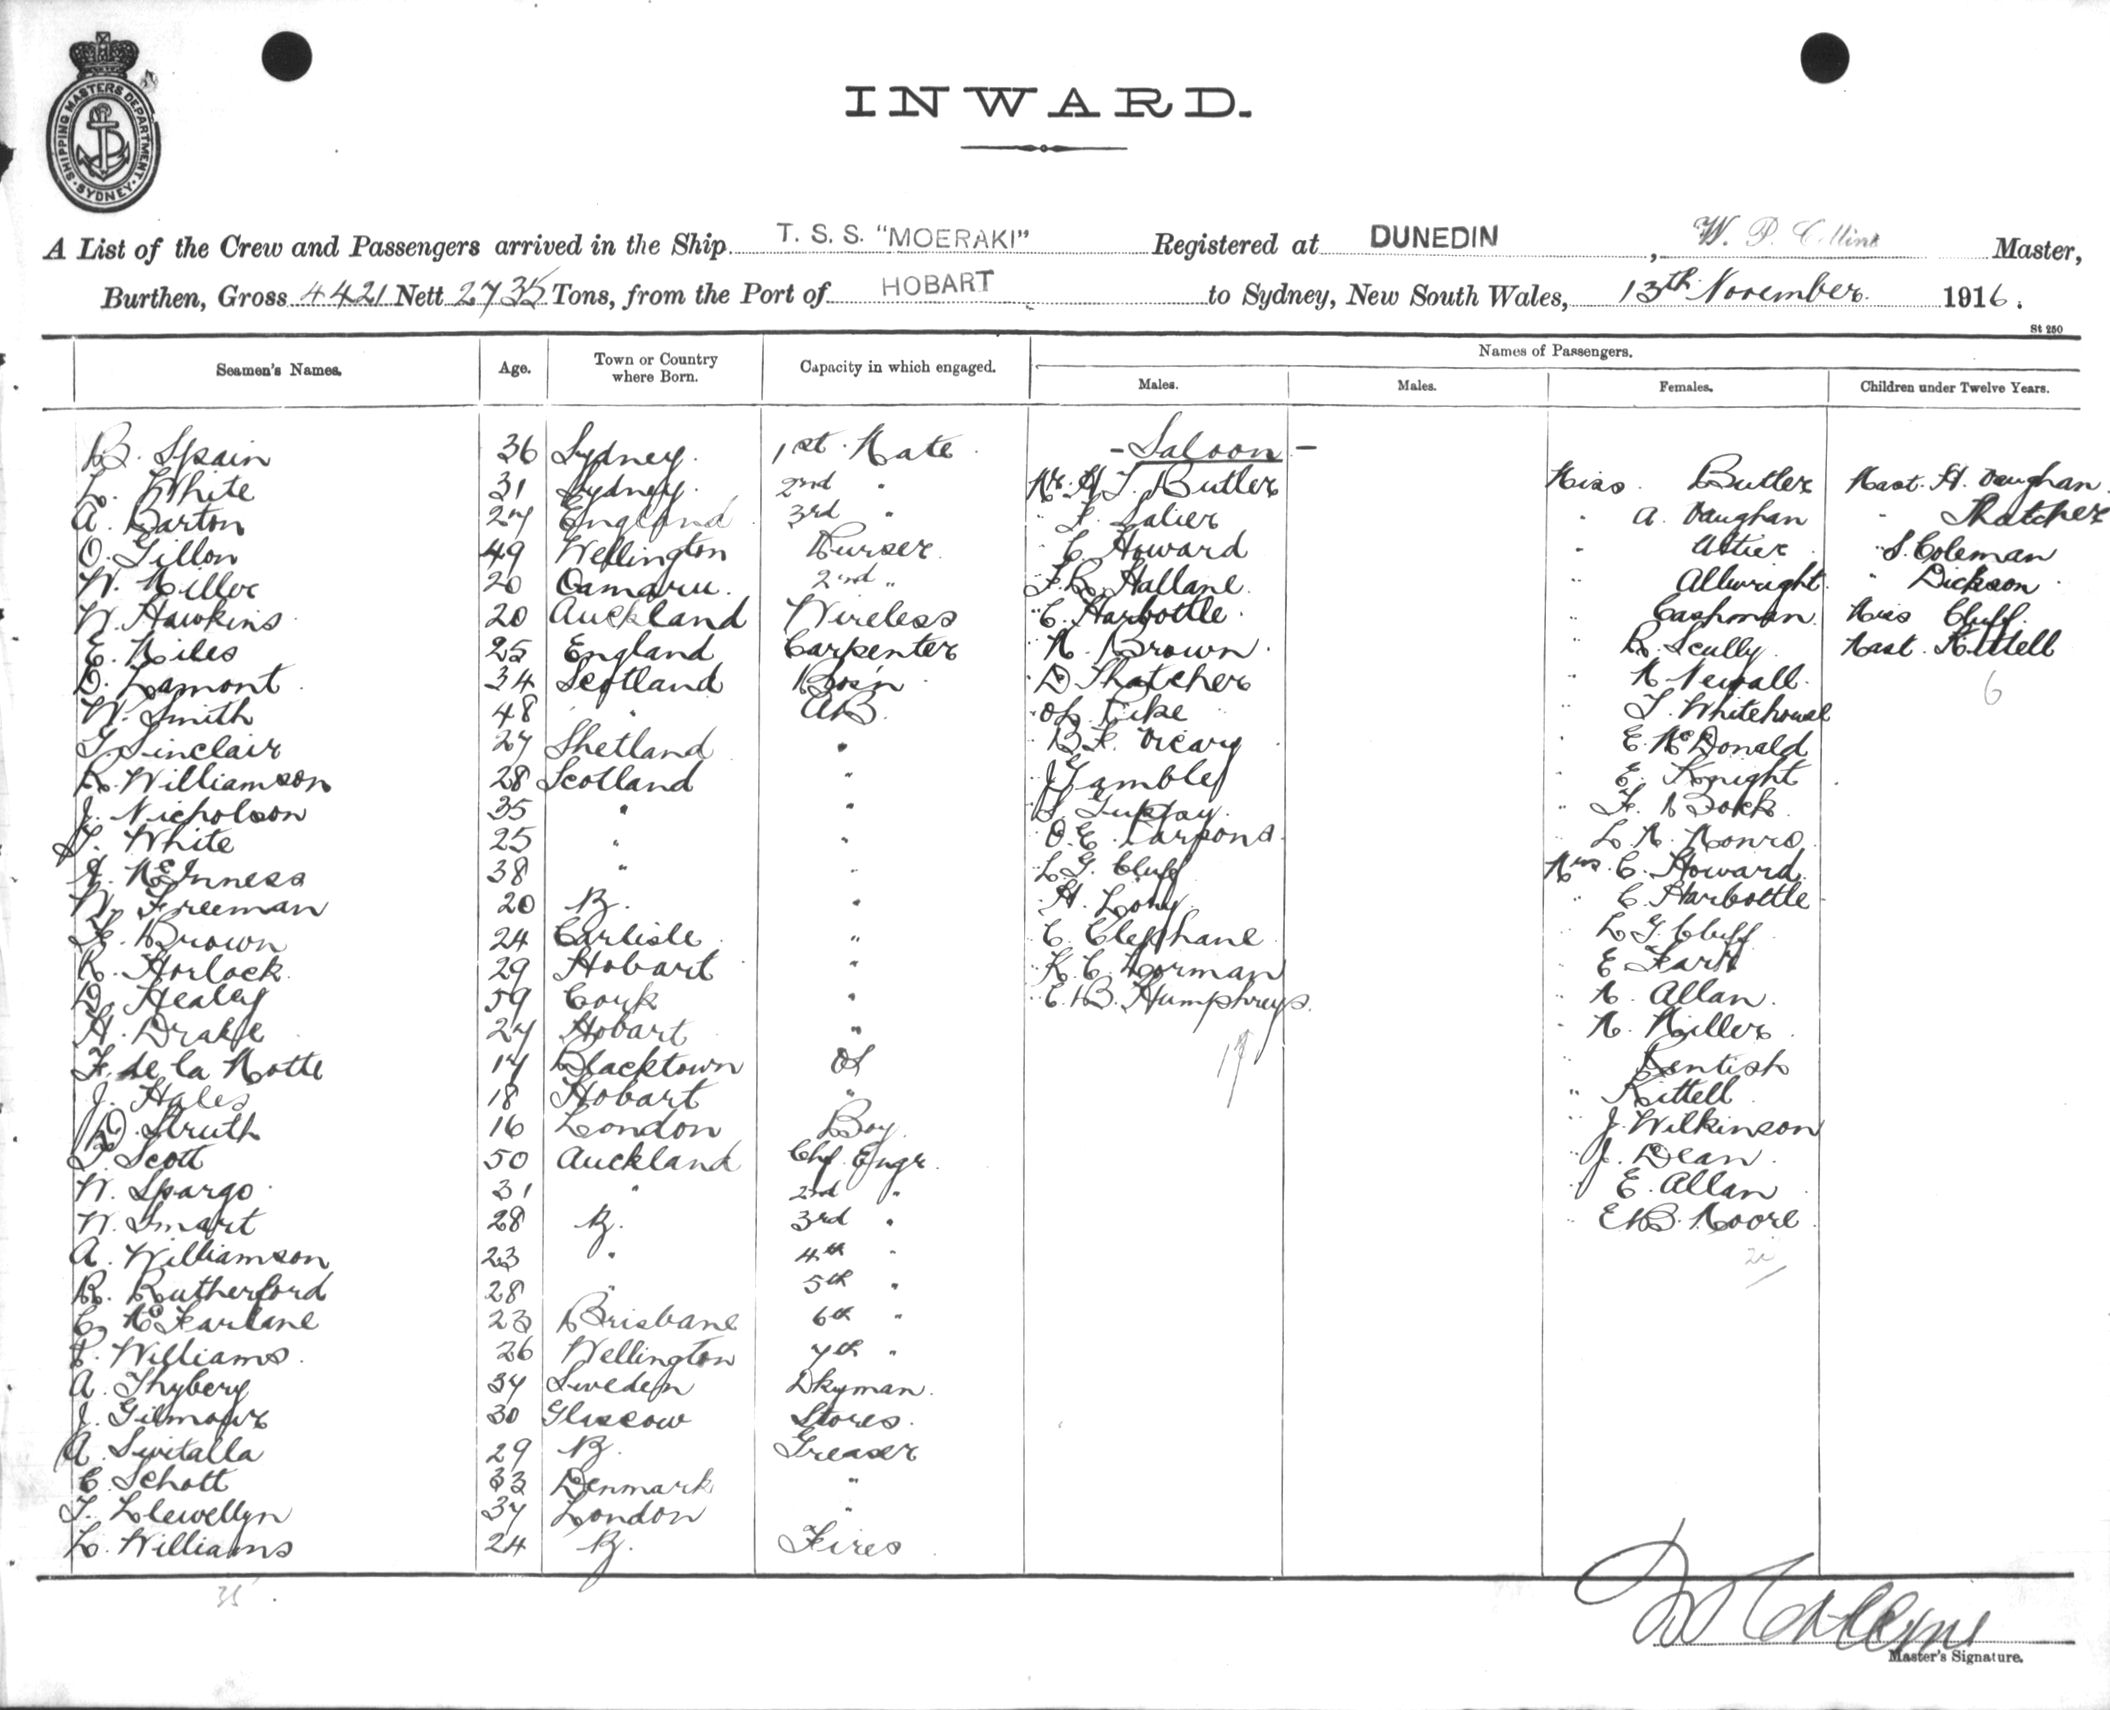 SHIPPING MASTERS DEPARTMENT. SYDNEY.
INWARD.
A List of the Crew and Passengers arrived in the Ship T. S. S. "MOERAKI" Registered at DUNEDIN, W. P. Collins Master,
Burthen, Gross 4421 Nett 2735 Tons, from the Port of HOBART to Sydney, New South Wales, 13th November 1916.
St 250
Seamen's Names. Age. Town or Country where Born. Capacity in which engaged. Names of Passengers.
Males. Males. Females. Children under Twelve Years.
- Saloon -
B. Spain 36 Sydney. 1st Mate
L. White 31 Sydney. 2nd " Mr. H J. Butler Miss Butler Mast. H. Vaughan
A. Barton 27 England 3rd " " F. Salier " A. Vaughan " Thatcher
O. Gillon 49 Wellington Purser " C. Howard " Attier " S. Coleman
W. Miller 20 Oamaru. 2nd " " Hallane. " Allwright " Dickson
W. Hawkins 20 Auckland Wireless " C. Harbottle. " Cashman Miss Cluff.
E. Miles 25 England Carpenter " M. Brown. " R. Scully Mast. Kittell
D. Lamont 34 Scotland Bos'n " D Thatcher " M Newall. 6
W. Smith 48 " " AB. " Pike " T. Whitehouse
T. Sinclair 27 Shetland " " B F. Vicary " E. McDonald
R. Williamson 28 Scotland " " J Gamble " E. Knight
J. Nicholson 35 " " " " F. Bock
T. White 25 " " " O. E. Parsons " L. M. Monro
McInness 38 " " " L. G. Cluff Mrs. C. Howard
W. Freeman 20 " " H. Long " C. Harbottle
F. Brown 24 Carlisle " " C. Clephane " L G Cluff
R. Horlock 29 Hobart " " K. C. Dorman " E
D. Healey 59 Cork " " E. B. Humphreys. " M. Allan.
H. Drake 27 Hobart " 17 " M. Miller
F. de la Motte 17 Blacktown OS " Kentish
J. Hales 18 Hobart " " Kittell
D. Struth 16 London Boy. " J. Wilkinson
T. Scott 50 Auckland Chf. Engr. " J. Dean
W. Spargo 31 " 2nd " " E. Allan
W. Smart 28 3rd " " E B. Moore
A. Williamson 23 " 4th "
R. Rutherford 28 " 5th "
C. McFarlane 23 Brisbane 6th "
P. Williams. 26 Wellington 7th "
A. Thyberg 34 Sweden Dkyman.
J. Gilmour 30 Glascow Stores.
A. Switalla 29 Greaser
C Schott 33 Denmark "
T. Llewellyn 37 London "
L. Williams 24 Fires
35
Master's Signature.